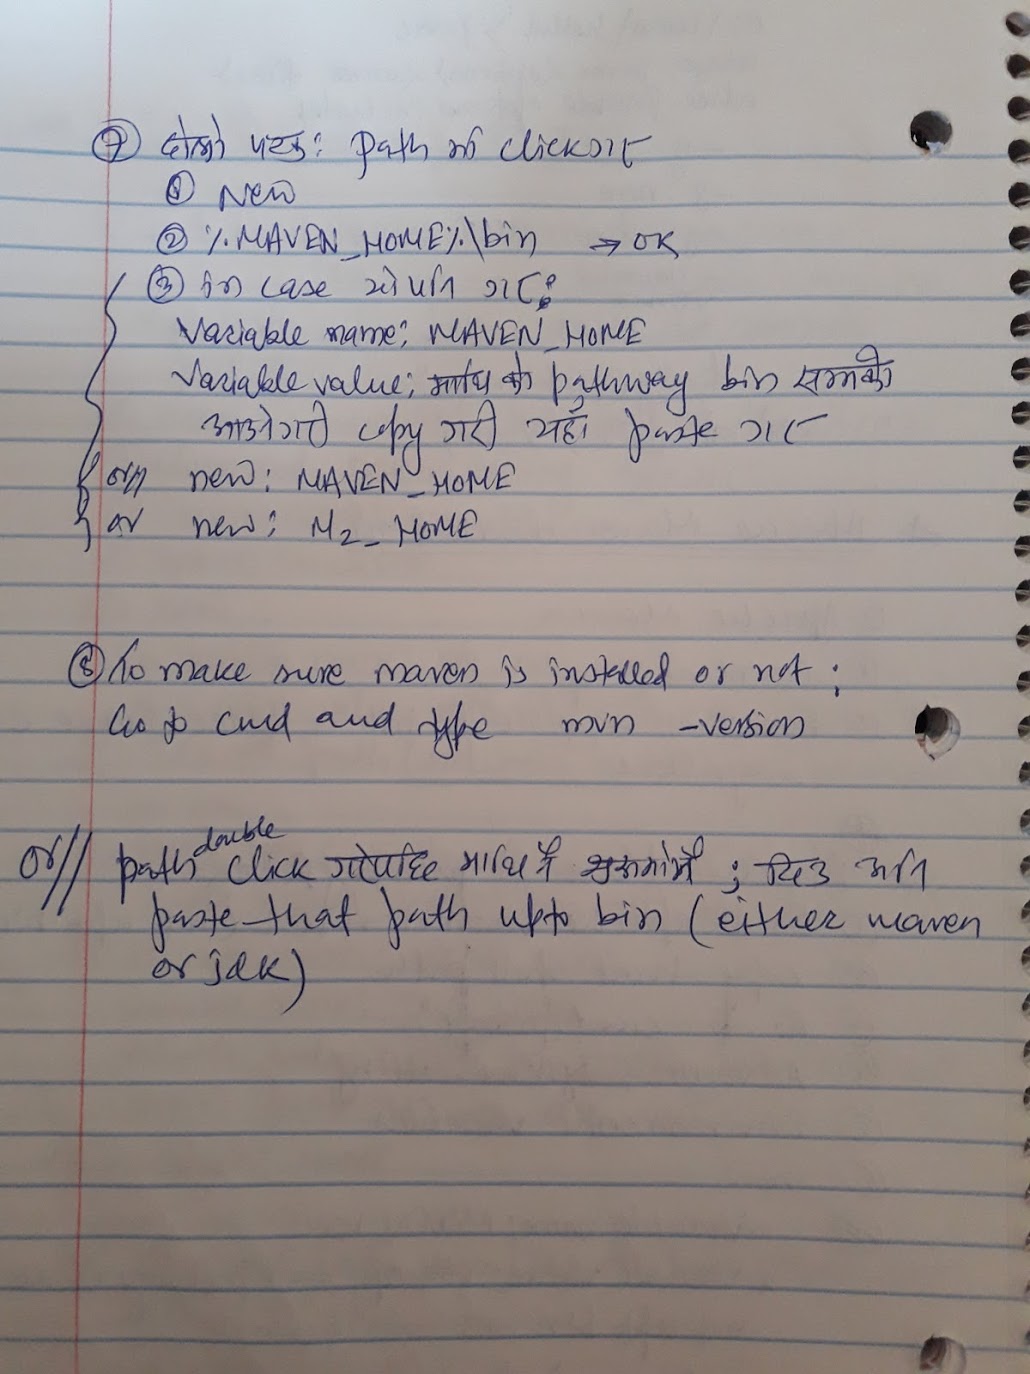 ⑦ दोस्रो पटक: path मा click गर
① New
② %MAVEN_HOME%\bin → OK
③ in case यो पनि गर:
Variable name: MAVEN_HOME
Variable value: माथि को pathway bin सम्मको
copy गरी यहाँ paste गर
or// new: MAVEN_HOME
or new: M2_HOME
⑧ To make sure maven is installed or not:
Go to cmd and type mvn -version
or// path double click गरेपछि माथि नै ; अनि
paste that path upto bin (either maven
or jdk)